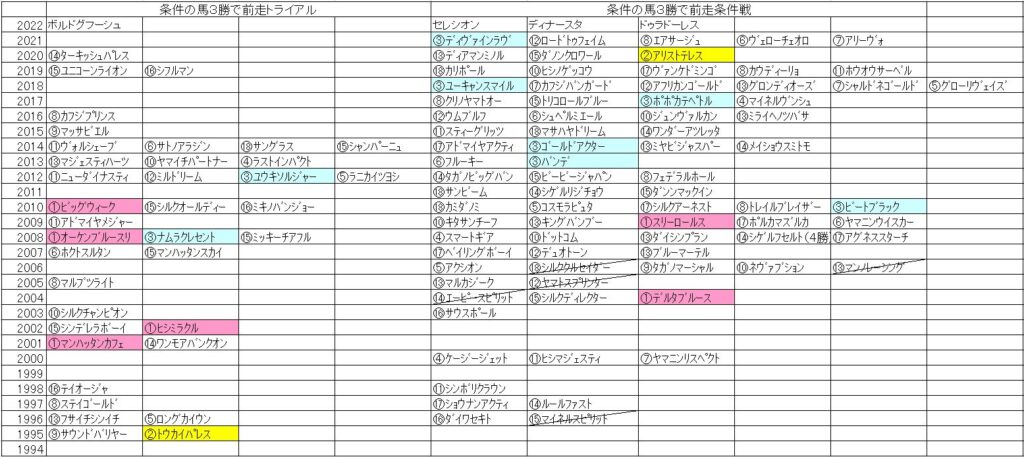 条件の馬３勝で前走トライアル 条件の馬３勝で前走条件戦
2022 ボルドグフーシュ セレシオン ディナースタ ドゥラドーレス
2021 ③ディヴァインラヴ ⑫ロードトゥフェイム ⑧エアサージュ ⑥ヴェローチェオロ ⑦アリーヴォ
2020 ⑭ターキッシュパレス ⑬ディアマンミノル ⑮ダノンクロワール ②アリストテレス
2019 ⑮ユニコーンライオン ⑯シフルマン ⑱カリボール ⑩ヒシノゲッコウ ⑰ヴァンケドミンゴ ⑧カウディーリョ ⑪ホウオウサーベル
2018 ③ユーキャンスマイル ⑰カフジバンガード ⑫アフリカンゴールド ⑬グロンディオーズ ⑦シャルドネゴールド ⑤グローリヴェイズ
2017 ⑧クリノヤマトオー ⑮トリコロールブルー ③ポポカテペトル ④マイネルヴンシュ
2016 ⑧カフジプリンス ⑫ウムブルフ ⑥シュペルミエール ⑩ジュンヴァルカン ⑬ミライヘノツバサ
2015 ⑨マッサビエル ⑪スティーグリッツ ⑱マサハヤドリーム ⑭ワンダーアツレッタ
2014 ⑪ヴォルシェーブ ⑥サトノアラジン ⑱サングラス ⑮シャンパーニュ ⑰アドマイヤアクティ ③ゴールドアクター ⑬ミヤビジャスパー ⑭メイショウスミトモ
2013 ⑬マジェスティハーツ ⑩ヤマイチパートナー ④ラストインパクト ⑥フルーキー ③バンデ
2012 ⑪ニューダイナスティ ⑫ミルドリーム ③ユウキソルジャー ⑤ラニカイツヨシ ⑭タガノビッグバン ⑮ビービージャパン ⑧フェデラルホール
2011 ⑱サンビーム ⑭シゲルリジチョウ ⑮ダンツマックイン
2010 ①ビッグウィーク ⑮シルクオールディー ⑯ミキノバンジョー ⑱カミダノミ ⑤コスモラピュタ ⑰シルクアーネスト ⑧トレイルブレイザー ③ビートブラック
2009 ⑪アドマイヤメジャー ⑩キタサンチーフ ⑬キングバンブー ①スリーロールス ⑰ポルカマズルカ ⑥ヤマニンウイスカー
2008 ①オーケンブルースリ ③ナムラクレセント ⑮ミッキーチアフル ④スマートギア ⑩ドットコム ⑬ダイシンプラン ⑭シゲルフセルト(４勝) ⑰アグネススターチ
2007 ⑥ホクトスルタン ⑮マンハッタンスカイ ⑰ベイリングボーイ ⑫デュオトーン ⑬ブルーマーテル
2006 ⑤アクシオン ⑱シルククルセイダー ⑨タガノマーシャル ⑩ネヴァブション ⑬マンノレーシング
2005 ⑧マルブツライト ⑬マルカジーク ⑫ヤマトスプリンター
2004 ⑭エーピースピリット ⑮シルクディレクター ①デルタブルース
2003 ⑩シルクチャンピオン ⑯サウスポール
2002 ⑮シンデレラボーイ ①ヒシミラクル
2001 ①マンハッタンカフェ ⑭ワンモアバンクオン
2000 ④ケージージェット ⑪ヒシマジェスティ ⑦ヤマニンリスペクト
1999
1998 ⑯テイオージャ ⑪シンボリクラウン
1997 ⑧ステイゴールド ⑰ショウナンアクティ ⑭ルールファスト
1996 ⑬フサイチシンイチ ⑤ロングカイウン ⑯ダイワセキト ⑮マイネルスピリット
1995 ⑨サウンドバリヤー ②トウカイパレス
1994